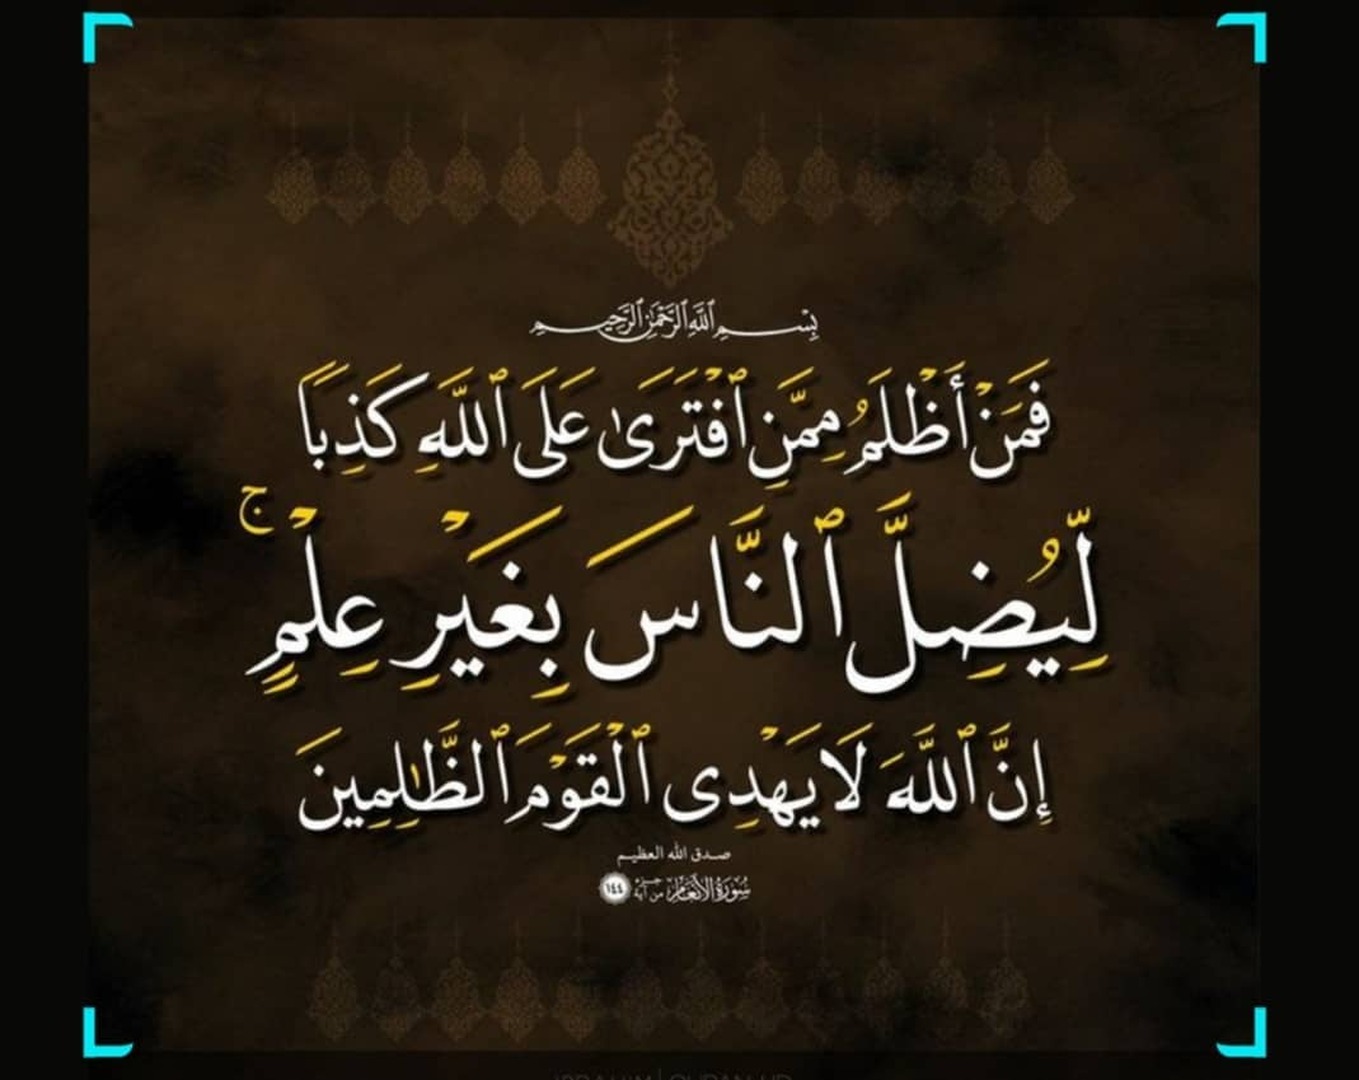 بِسْمِ ٱللَّهِ ٱلرَّحْمَٰنِ ٱلرَّحِيمِ
فَمَنْ أَظْلَمُ مِمَّنِ ٱفْتَرَىٰ عَلَى ٱللَّهِ كَذِبًا
لِّيُضِلَّ ٱلنَّاسَ بِغَيْرِ عِلْمٍ ۚ
إِنَّ ٱللَّهَ لَا يَهْدِى ٱلْقَوْمَ ٱلظَّٰلِمِينَ
صدق الله العظيم
سُورَةُ الأَنْعَام جزء من آية ١٤٤